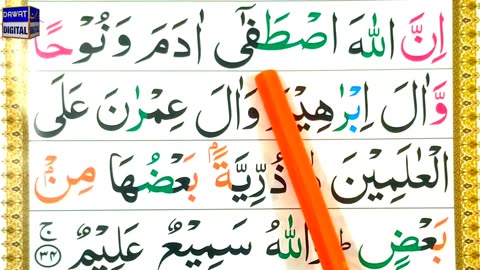 DAWAT
DIGITAL
اِنَّ اللّٰهَ اصْطَفٰۤى اٰدَمَ وَ نُوْحًا
وَّ اٰلَ اِبْرٰهِیْمَ وَ اٰلَ عِمْرٰنَ عَلَى
الْعٰلَمِیْنَ ذُرِّیَّةًۢ بَعْضُهَا مِنْۢ
بَعْضٍؕ وَ اللّٰهُ سَمِیْعٌ عَلِیْمٌ ۚ ۳۴